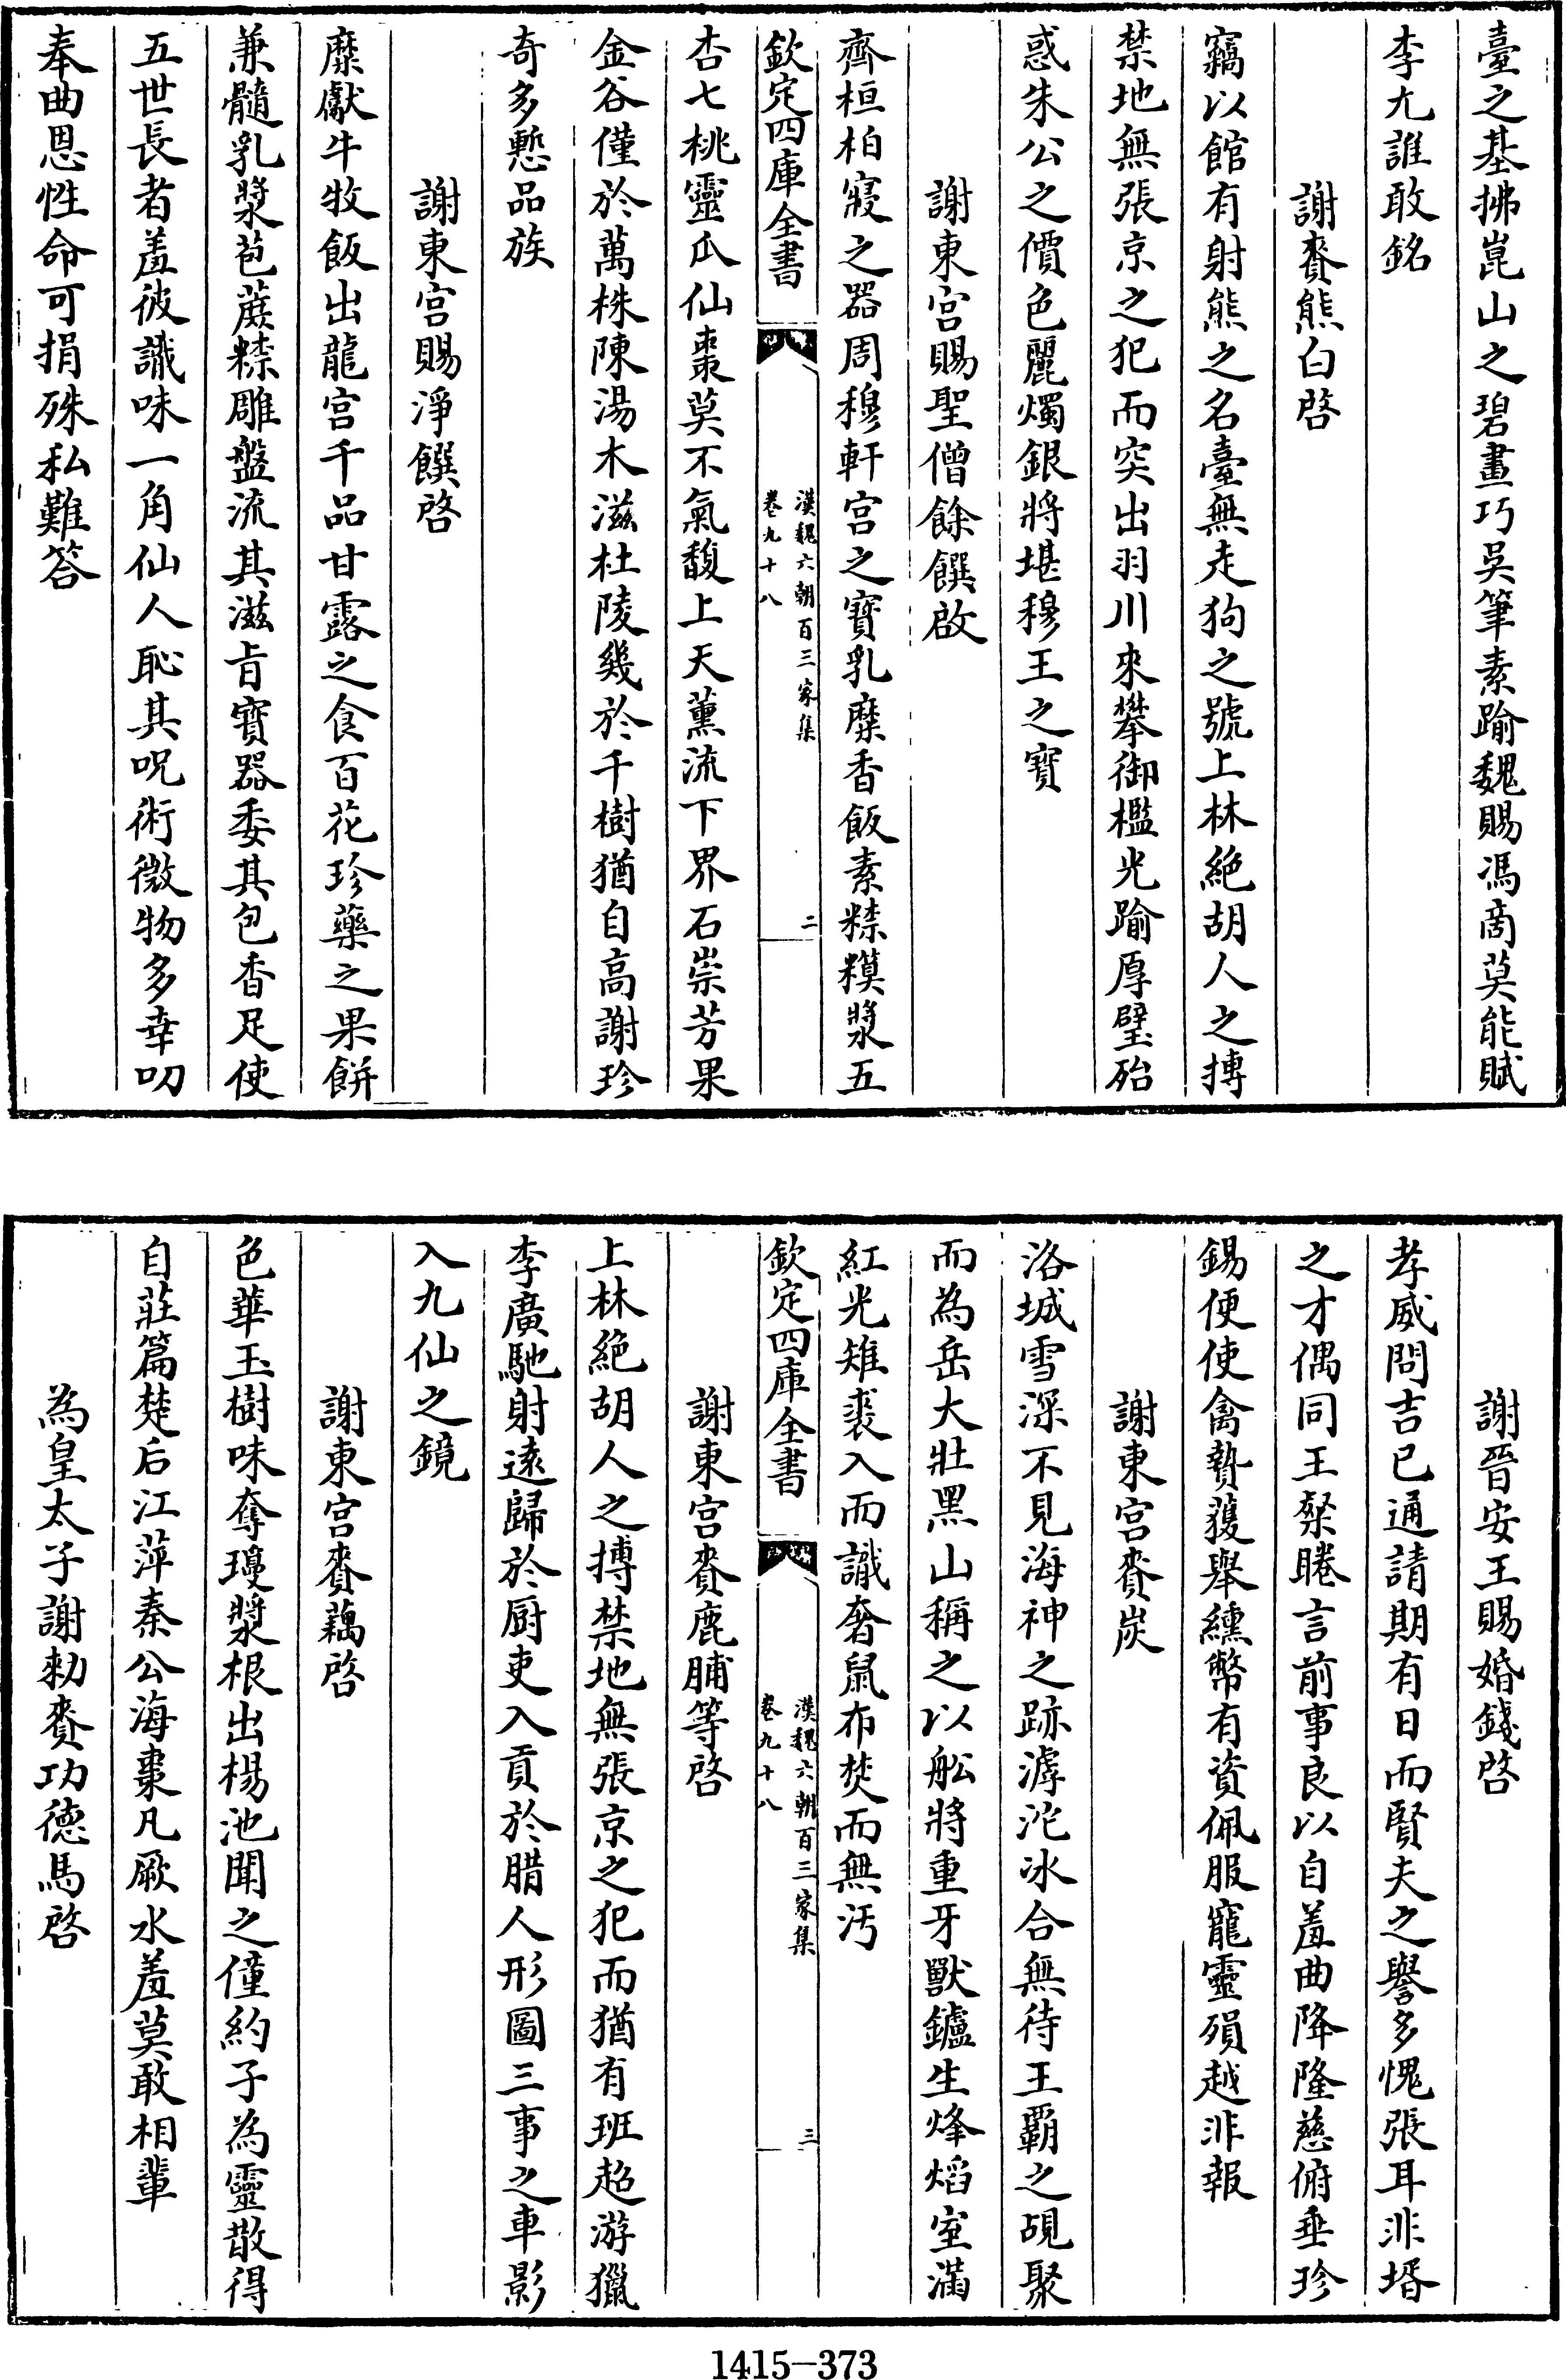 臺之基拂崑山之碧畫巧吳筆素踰魏賜馮商莫能賦
李尤誰敢銘
謝賚熊白啓
竊以館有射熊之名臺無走狗之號上林絶胡人之搏
禁地無張京之犯而突出羽川來攀御檻光踰厚璧殆
惑朱公之價色麗燭銀將堪穆王之寶
謝東宫賜聖僧餘饌啟
齊桓柏寢之器周穆軒宫之寶乳糜香飯素粽糗漿五
欽定四庫全書
漢魏六朝百三家集
卷九十八
二
杏七桃靈瓜仙棗莫不氣馥上天薰流下界石崇芳果
金谷僅於萬株陳湯木滋杜陵幾於千樹猶自高謝珍
奇多慙品族
謝東宫賜淨饌啓
糜獻牛牧飯出龍宫千品甘露之食百花珍藥之果餅
兼髓乳漿苞蔗粽雕盤流其滋旨寶器委其包香足使
五世長者羞彼識味一角仙人恥其呪術微物多幸叨
奉曲恩性命可捐殊私難答
謝晉安王賜婚錢啓
孝威問吉已通請期有日而賢夫之譽多愧張耳非壻
之才偶同王粲睠言前事良以自羞曲降隆慈俯垂珍
錫便使禽贄獲舉纁幣有資佩服寵靈殞越非報
謝東宫賚炭
洛城雪深不見海神之跡滹沱冰合無待王霸之覘聚
而為岳大壯黑山稱之以舩將重牙獸鑪生烽熖室滿
紅光雉裘入而識奢鼠布焚而無汚
欽定四庫全書
漢魏六朝百三家集
卷九十八
三
謝東宫賚鹿脯等啓
上林絶胡人之搏禁地無張京之犯而猶有班超游獵
李廣馳射遠歸於厨吏入貢於腊人形圖三事之車影
入九仙之鏡
謝東宫賚藕啓
色華玉樹味奪瓊漿根出楊池聞之僮約子為靈散得
自莊篇楚后江萍秦公海棗凡厥水羞莫敢相輩
為皇太子謝勑賚功德馬啓
1415-373